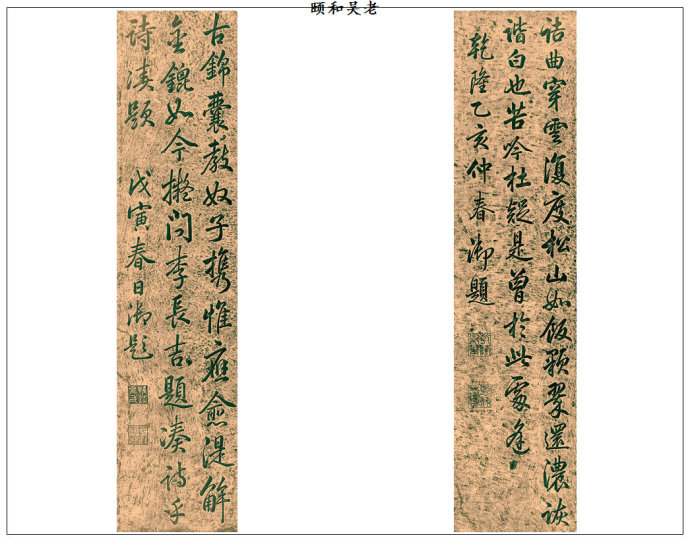 颐和吴老
詰曲穿雲復度松山如飯顆翠還濃詼
諧白也苦吟杜疑是曾於此處逢
乾隆乙亥仲春御題
古錦囊教奴子攜惟應愈湜解
金鎞如今擬問李長吉題湊詩乎
詩湊題 戊寅春日御題